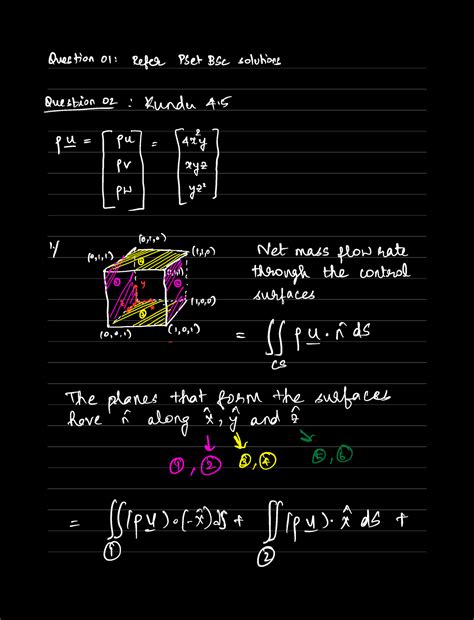 Question 01: Refer PSet BSc solutions
Question 02 : Kundu 4.5
ρu = [ρu ρv ρw] = [4x²y xyz yz²]
1/
(0,1,0)
(0,1,1) (1,1,0)
(1,1,1)
y
(1,0,0)
(0,0,1) (1,0,1)
Net mass flow rate
through the control
surfaces
= ∬ ρu · n̂ ds
CS
The planes that form the surfaces
have n̂ along x̂, ŷ and ẑ
①,② ③,④ ⑤,⑥
= ∬(ρu)·(-x̂)ds + ∬(ρu)· x̂ ds +
① ②